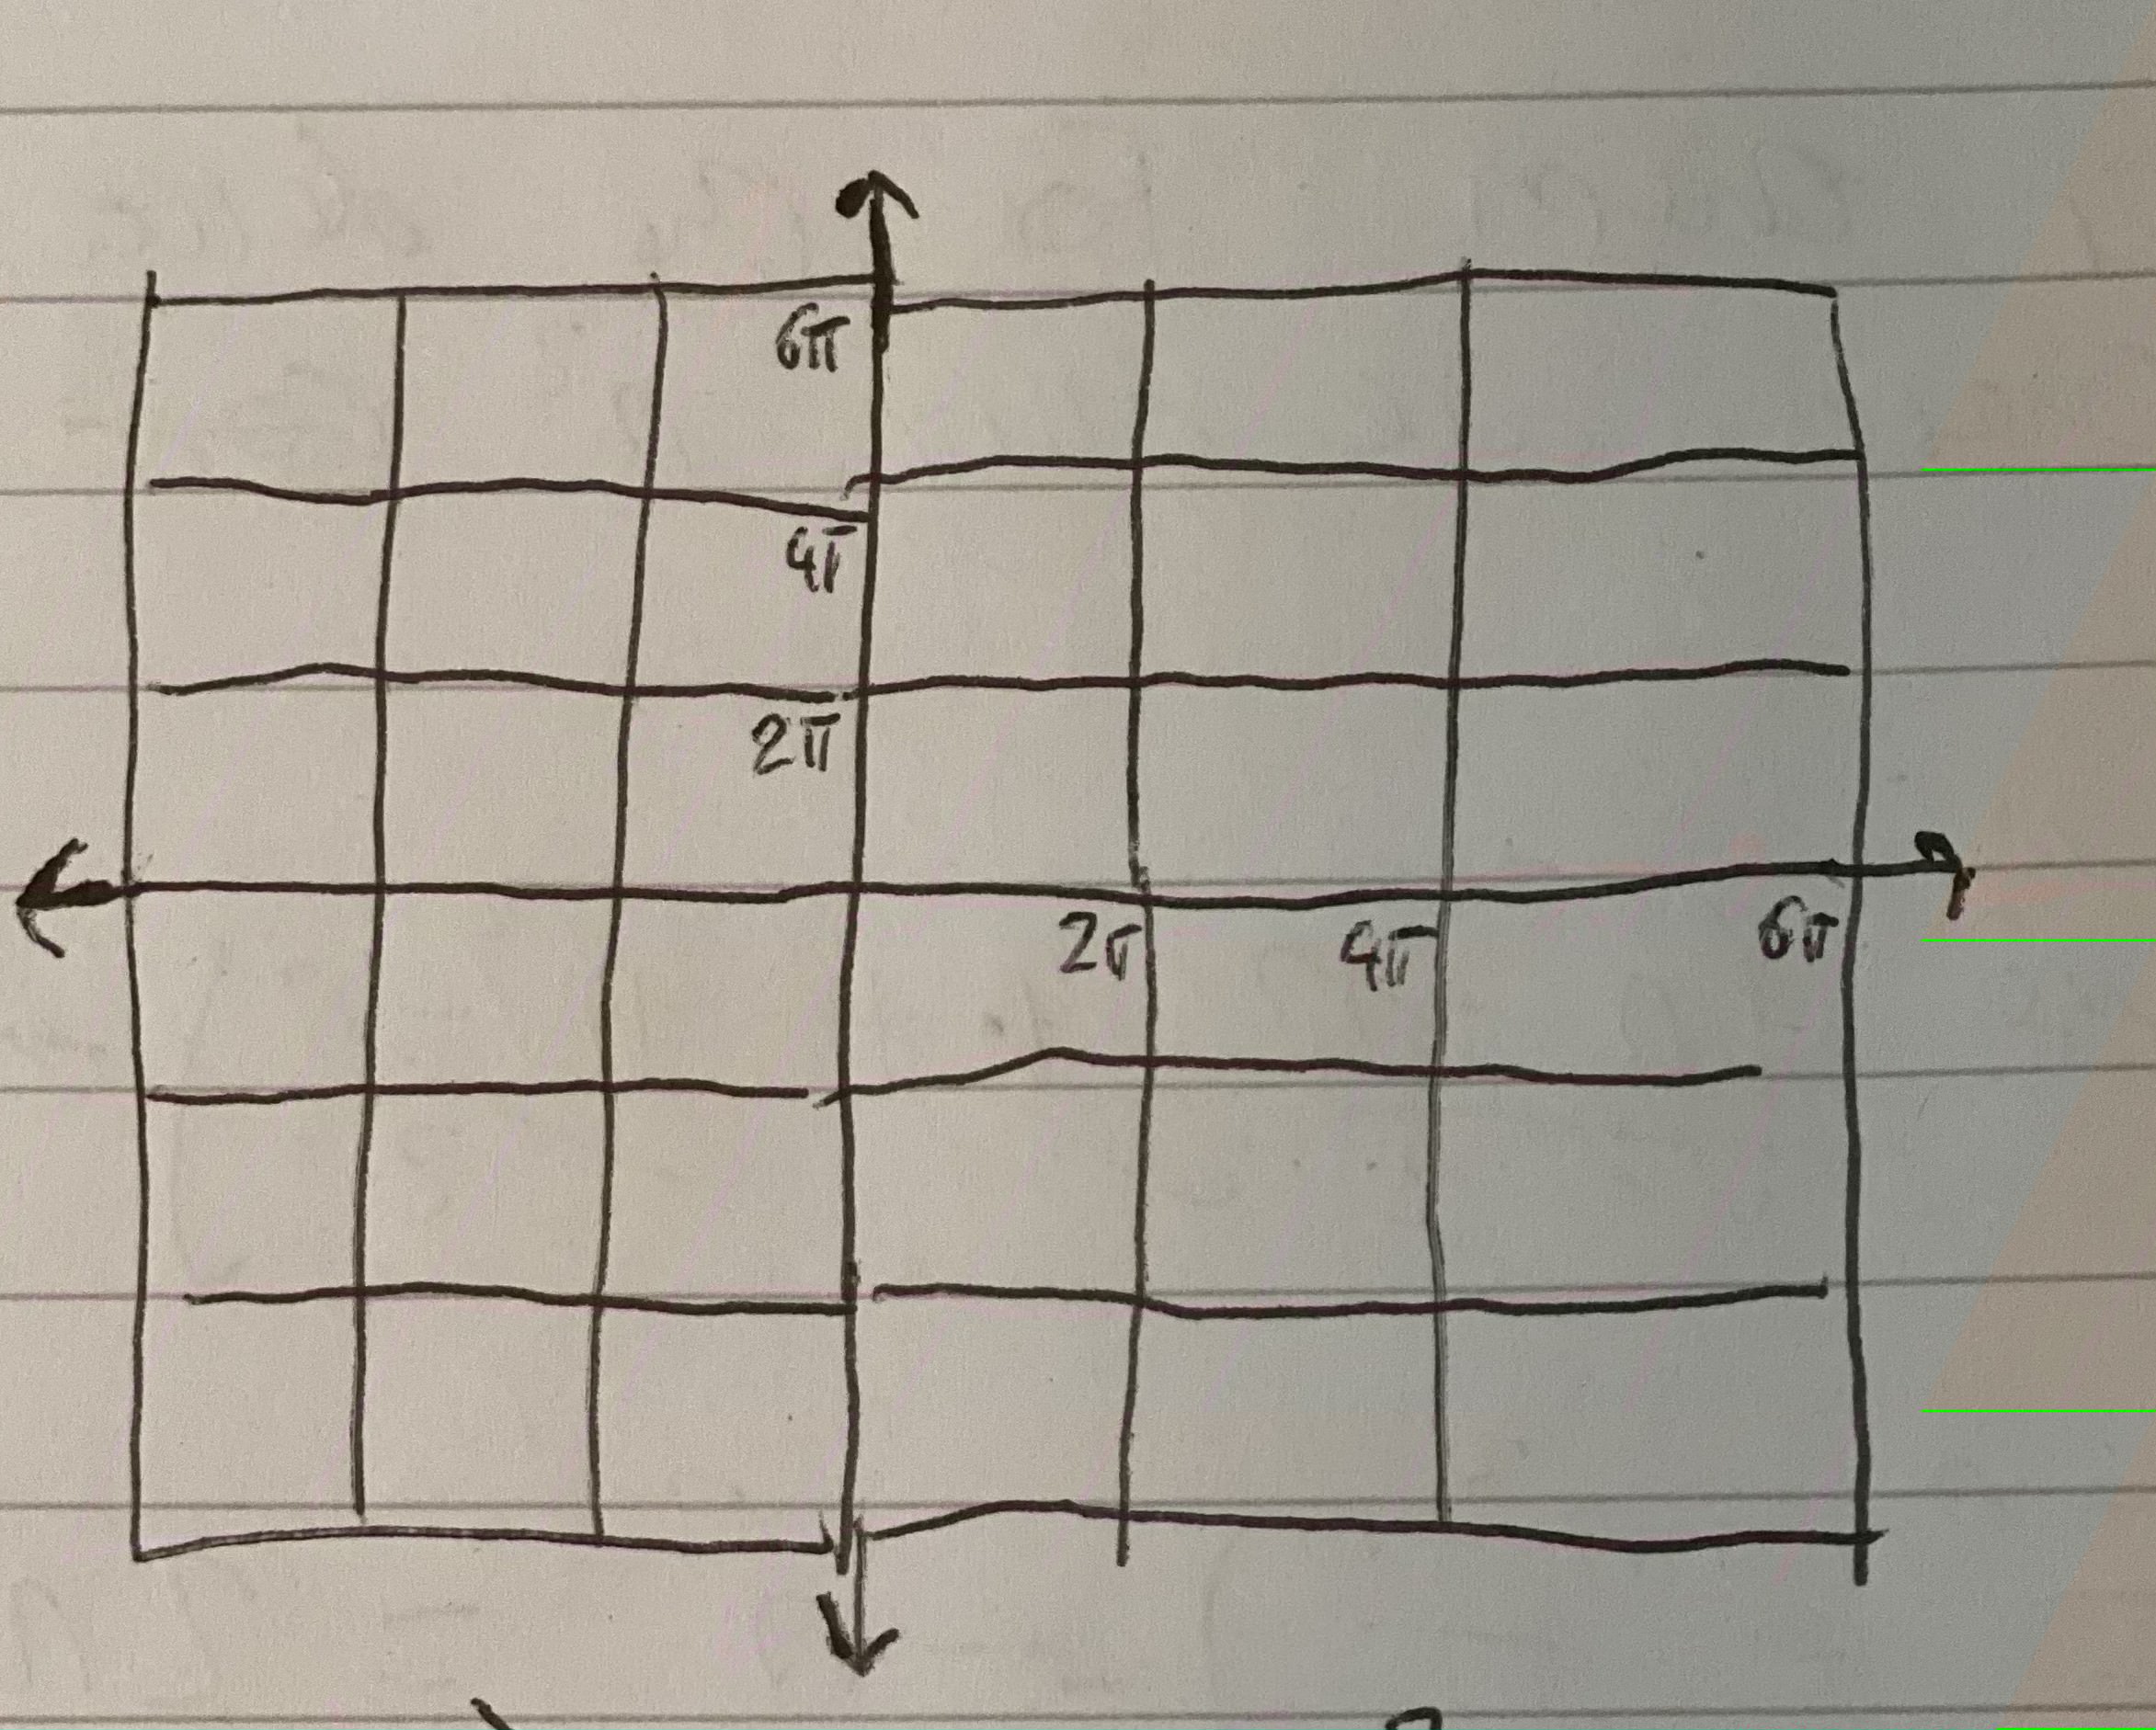 6π
4π
2π
2π 4π 6π